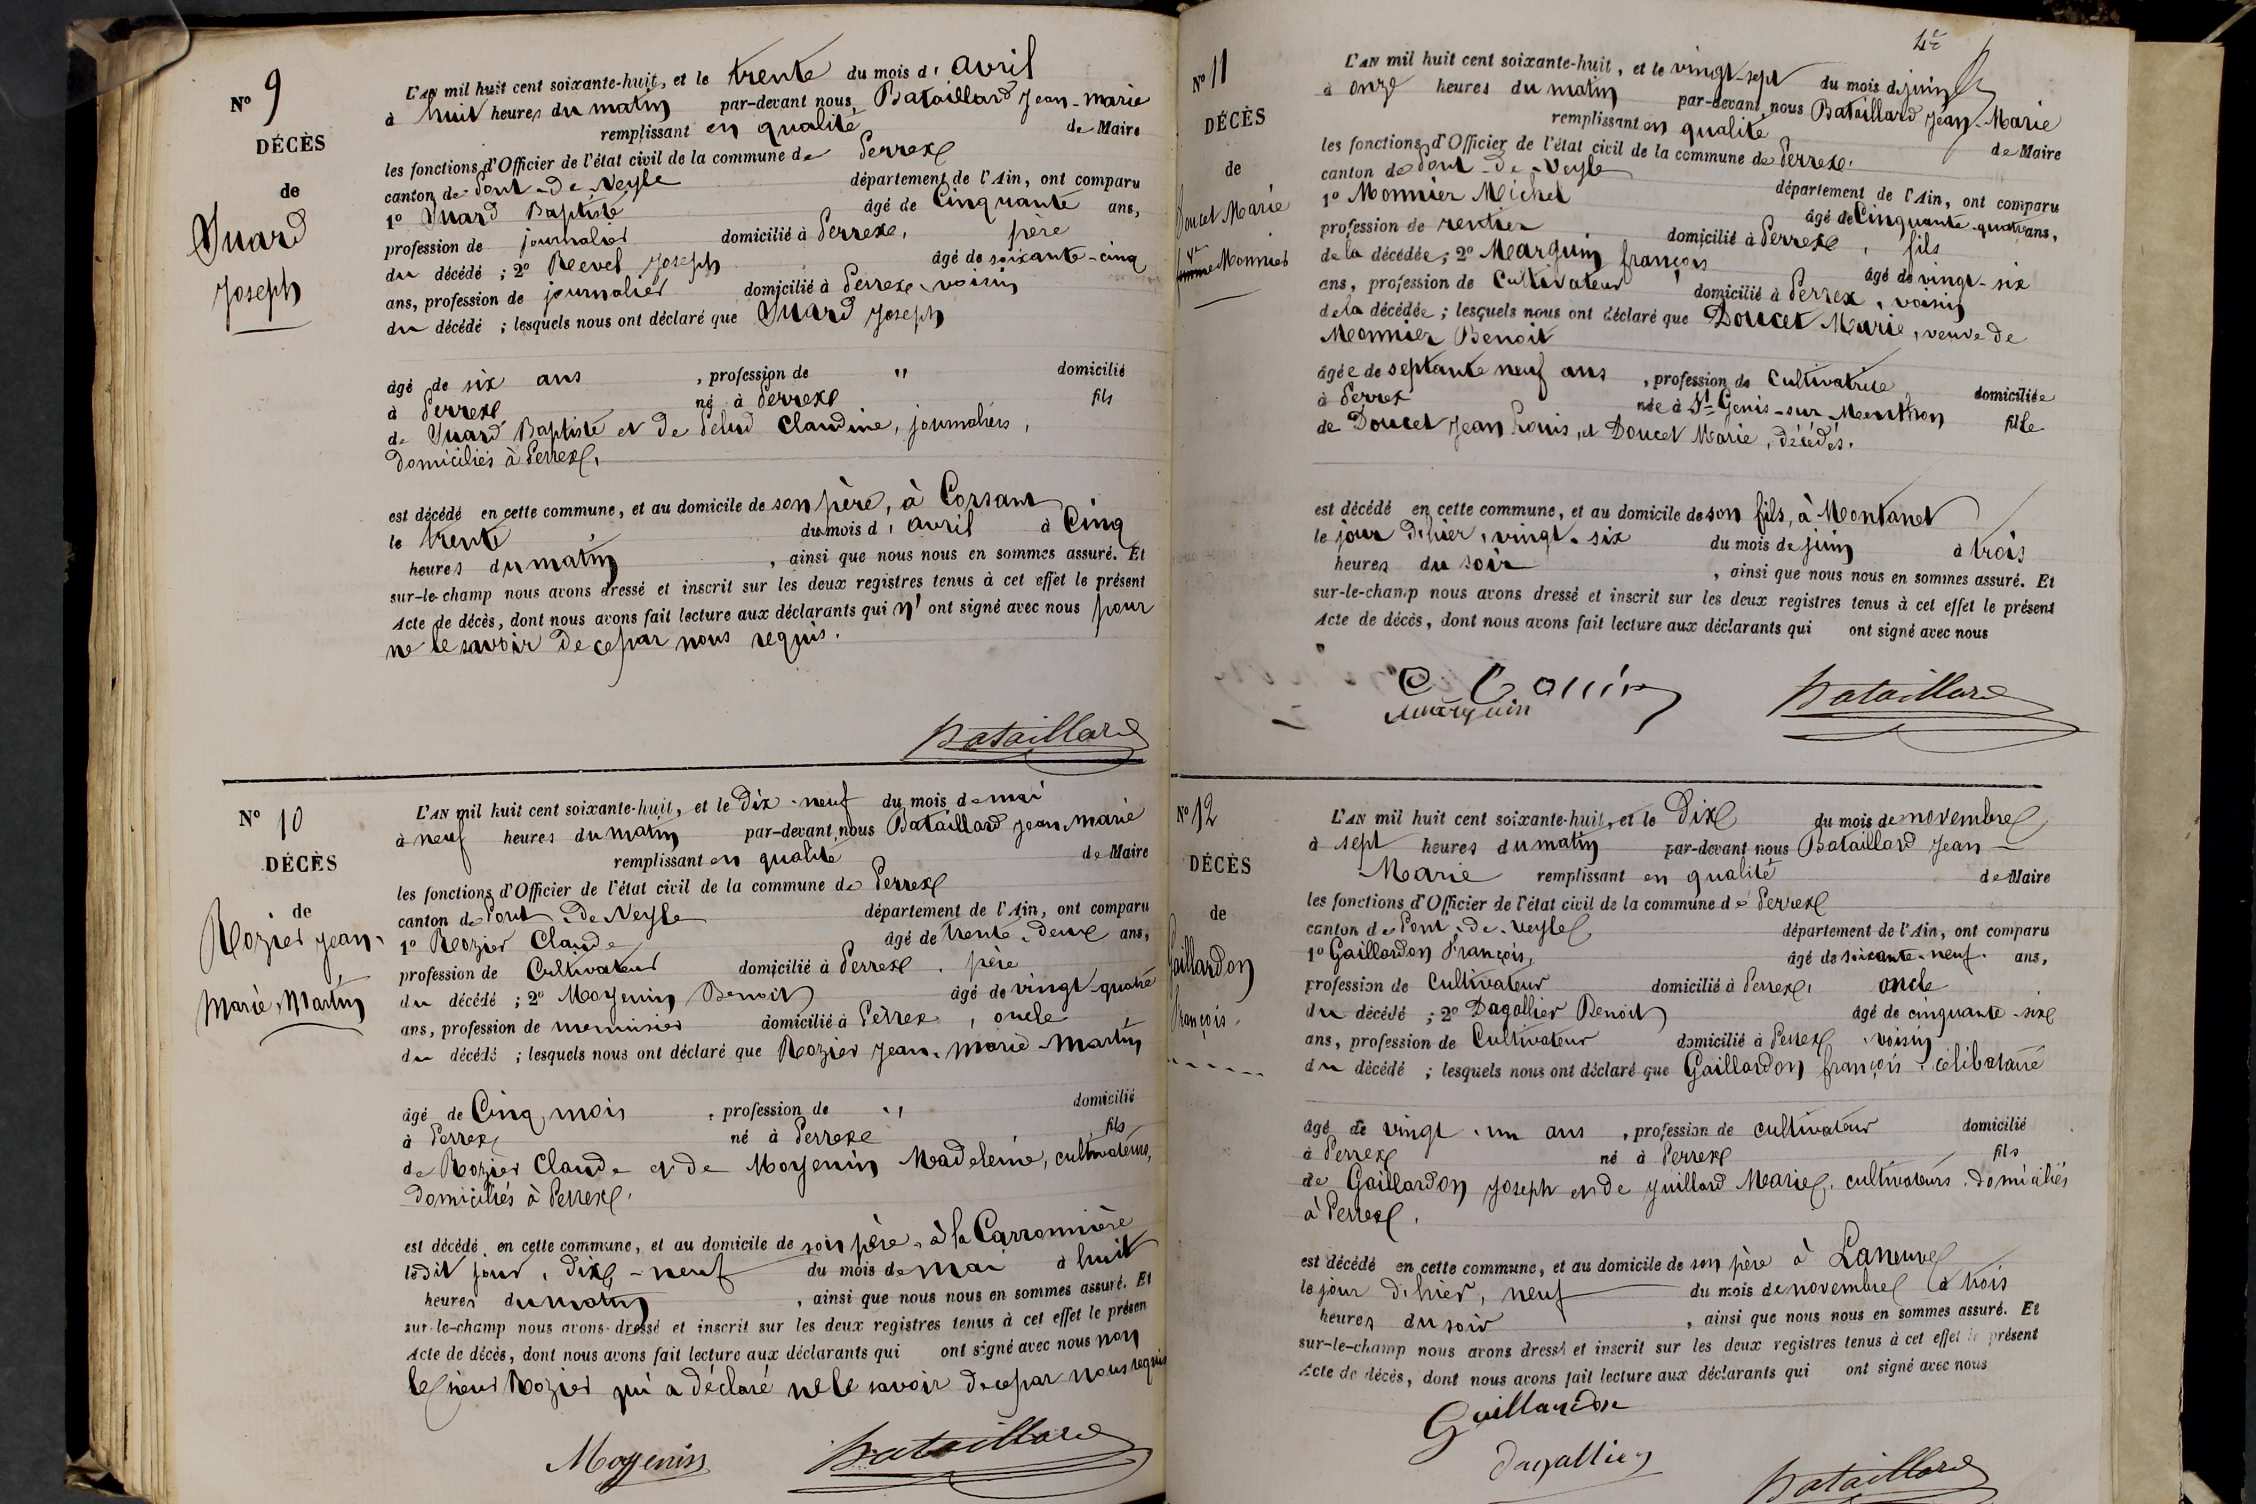 N° 9
DÉCÈS
de
Joseph
L'AN mil huit cent soixante-huit, et le trente du mois d'avril
à huit heures du matin par-devant nous, Bataillard Jean-Marie
remplissant en qualité de Maire
les fonctions d'Officier de l'état civil de la commune de Perrex
canton de Pont-de-Veyle département de l'Ain, ont comparu
1° Baptiste âgé de Cinquante ans,
profession de journalier domicilié à Perrex, père
du décédé ; 2° Joseph âgé de soixante-cinq
ans, profession de journalier domicilié à Perrex, voisin
du décédé ; lesquels nous ont déclaré que Joseph
âgé de six ans , profession de " domicilié
à Perrex né à Perrex fils
de Baptiste et de Claudine, journaliers,
domiciliés à Perrex,
est décédé en cette commune, et au domicile de son père, à Corsant
le trente du mois d'avril à Cinq
heures du matin , ainsi que nous nous en sommes assuré. Et
sur-le-champ nous avons dressé et inscrit sur les deux registres tenus à cet effet le présent
Acte de décès, dont nous avons fait lecture aux déclarants qui n'ont signé avec nous pour
ne le savoir de ce par nous requis.
Bataillard
N° 10
DÉCÈS
de
Rozier Jean-
Marie-Martin
L'AN mil huit cent soixante-huit, et le dix-neuf du mois de mai
à neuf heures du matin par-devant nous Bataillard Jean Marie
remplissant en qualité de Maire
les fonctions d'Officier de l'état civil de la commune de Perrex
canton de Pont-de-Veyle département de l'Ain, ont comparu
1° Rozier Claude âgé de trente-deux ans,
profession de Cultivateur domicilié à Perrex, père
du décédé ; 2° Moyenin Benoit âgé de vingt-quatre
ans, profession de menuisier domicilié à Perrex, oncle
du décédé ; lesquels nous ont déclaré que Rozier Jean-Marie-Martin
âgé de Cinq mois , profession de " domicilié
à Perrex né à Perrex fils
de Rozier Claude et de Moyenin Madeleine, cultivateurs,
domiciliés à Perrex.
est décédé en cette commune, et au domicile de son père, à la Carronnière
le dit jour, dix-neuf du mois de mai à huit
heures du matin , ainsi que nous nous en sommes assuré. Et
sur-le-champ nous avons dressé et inscrit sur les deux registres tenus à cet effet le présen
Acte de décès, dont nous avons fait lecture aux déclarants qui ont signé avec nous non
le sieur Rozier qui a déclaré ne le savoir de ce par nous requis
Moyenin Bataillard
N° 11
DÉCÈS
de
Doucet Marie
Vve Monnier
L'AN mil huit cent soixante-huit, et le vingt-sept du mois de juin
à onze heures du matin par-devant nous Bataillard Jean-Marie
remplissant en qualité de Maire
les fonctions d'Officier de l'état civil de la commune de Perrex.
canton de Pont-de-Veyle département de l'Ain, ont comparu
1° Monnier Michel âgé de Cinquante-quatre ans,
profession de rentier domicilié à Perrex, fils
de la décédée ; 2° Marguin françois âgé de vingt-six
ans, profession de Cultivateur domicilié à Perrex, voisin
de la décédée ; lesquels nous ont déclaré que Doucet Marie, veuve de
Monnier Benoit
âgée de septante neuf ans , profession de Cultivatrice domiciliée
à Perrex née à St Genis-sur-Menthon fille
de Doucet Jean Louis, et Doucet Marie, décédés.
est décédé en cette commune, et au domicile de son fils, à Montanet
le jour d'hier, vingt-six du mois de juin à trois
heures du soir , ainsi que nous nous en sommes assuré. Et
sur-le-champ nous avons dressé et inscrit sur les deux registres tenus à cet effet le présent
Acte de décès, dont nous avons fait lecture aux déclarants qui ont signé avec nous
Marguin Bataillard
N° 12
DÉCÈS
de
Gaillardon
François.
L'AN mil huit cent soixante-huit, et le Dix du mois de novembre
à sept heures du matin par-devant nous Bataillard Jean
Marie remplissant en qualité de Maire
les fonctions d'Officier de l'état civil de la commune de Perrex
canton de Pont-de-Veyle département de l'Ain, ont comparu
1° Gaillardon François, âgé de soixante-neuf ans,
profession de Cultivateur domicilié à Perrex, oncle
du décédé ; 2° Dagallier Benoit âgé de cinquante-six
ans, profession de Cultivateur domicilié à Perrex, voisin
du décédé ; lesquels nous ont déclaré que Gaillardon françois, célibataire
âgé de vingt-un ans , profession de cultivateur domicilié
à Perrex né à Perrex fils
de Gaillardon Joseph et de Guillard Marie, cultivateurs, domiciliés
à Perrex.
est décédé en cette commune, et au domicile de son père à Laneuve
le jour d'hier, neuf du mois de novembre à trois
heures du soir , ainsi que nous nous en sommes assuré. Et
sur-le-champ nous avons dressé et inscrit sur les deux registres tenus à cet effet le présent
Acte de décès, dont nous avons fait lecture aux déclarants qui ont signé avec nous
Gaillardon
Dagallier
Bataillard